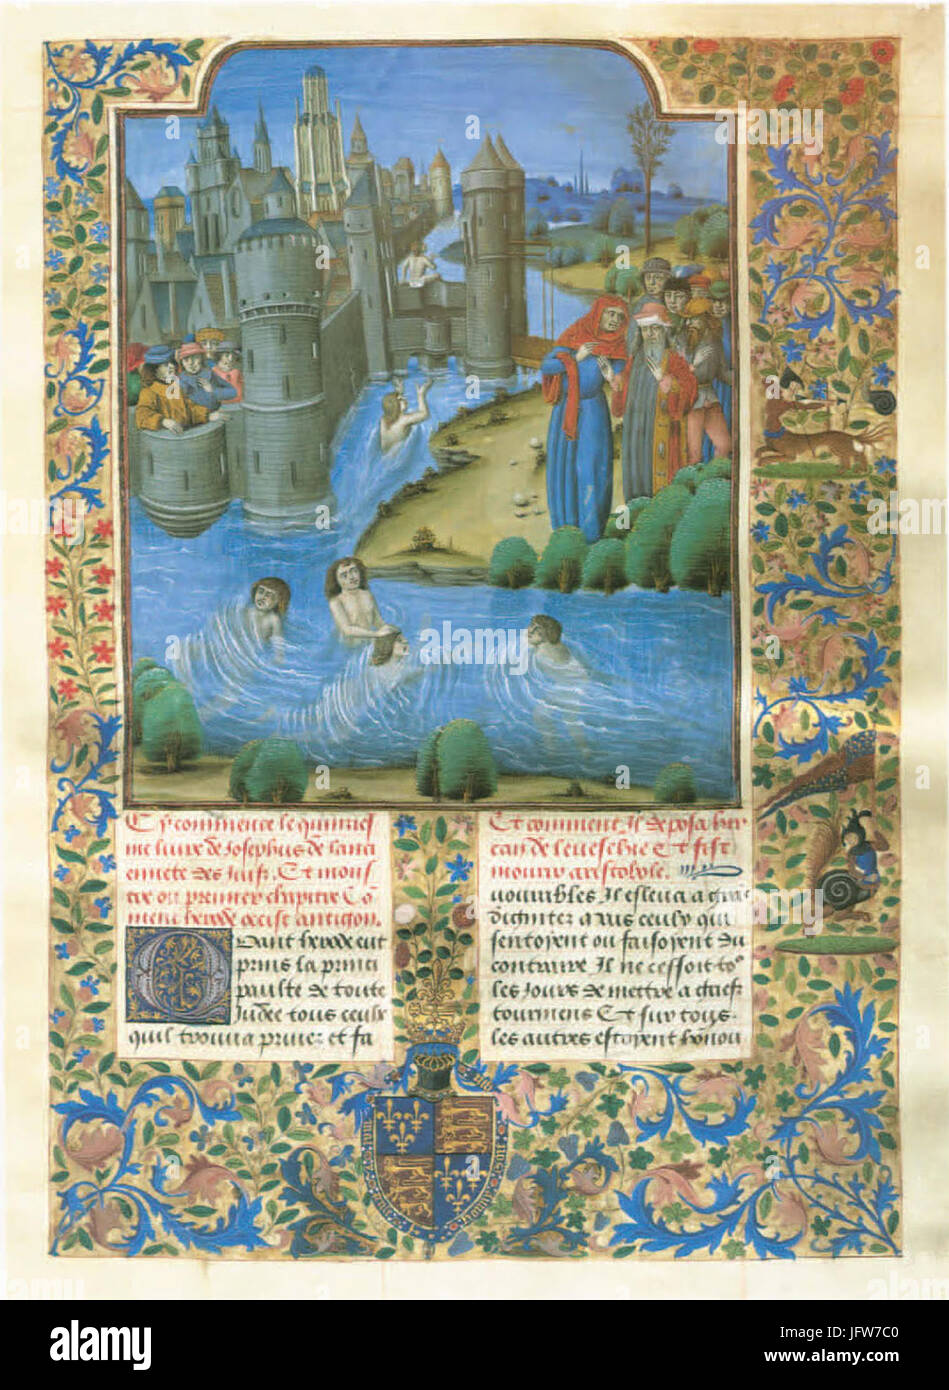 Cy commence le quinzies
me livre de Josephus de lanci
ennete des Juifz. Et mons
tre ou premier chapitre Co
ment herode occist antigon.
Quant herode eut
prins la princi
paulte de toute
Judee tous ceulx
quil trouva privez et fa
Et comment Il deposa hir
can de levesche Et fist
mourir aristobole.
vourables Il esleva a grans
dicnitez a tous ceulx qui
sentoyent ou faisoyent du
contraire Il ne cessoit to9
les Jours de mettre a grief
tourmens Et sur tous
les autres estoyent honou
a alamy
alamy stock photo
JFW7C0
www.alamy.com